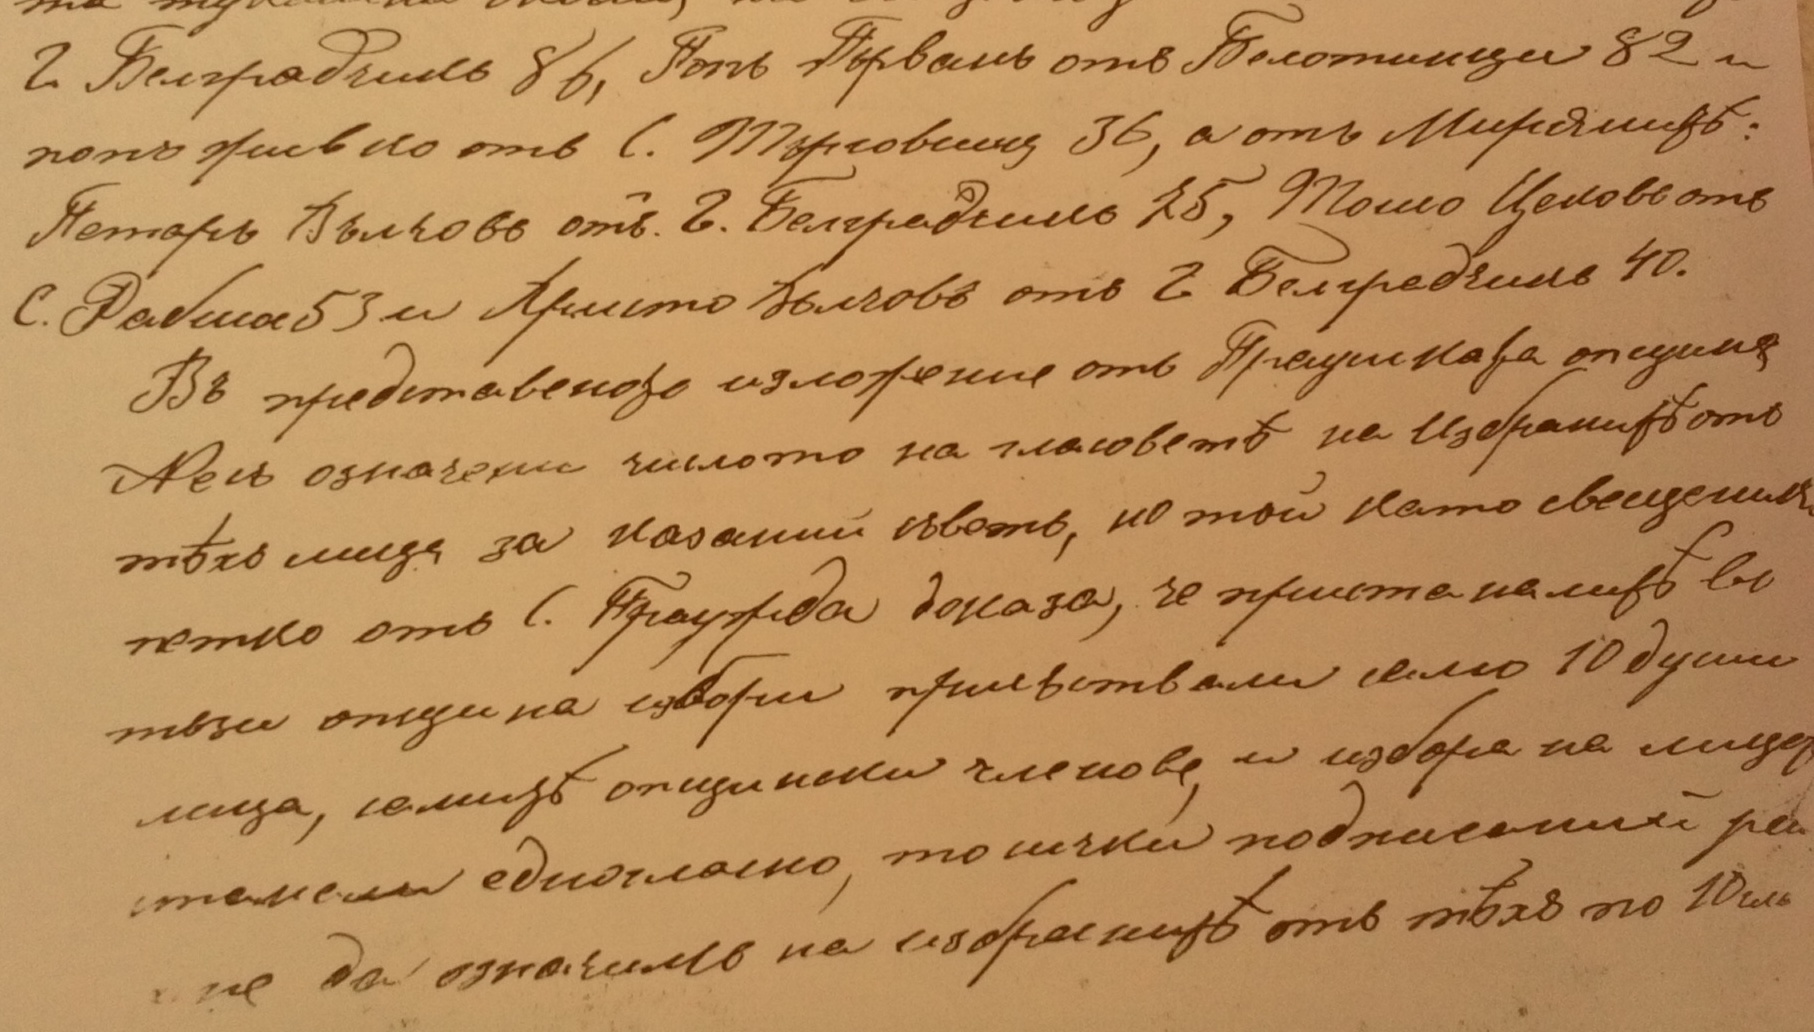 г. Белградчикъ 86, Попъ Първанъ отъ Белотинци 82 и
попъ Живко отъ с. Търговищ 36, а отъ Мирянитѣ:
Петъръ Вълчовъ отъ. г. Белградчикъ 75, Тошо Цековъ отъ
с. Рабиша 53 и Христо Вълчовъ отъ г. Белградчикъ 40.
Въ представеното изложение отъ Праужката опщинѫ
Несѫ означени числото на гласоветѣ на избранитѣ отъ
тѣхъ лицѫ за казаний съветъ, но той като свещеникъ
петко отъ с. Праужда доказа, че при станалитѣ въ
тъзи опщина избори присъствали само 10 души
лица, самитѣ опщински членове, и избора на лицат
станали едногласно, то ний подписаний ре
не да означимъ на избранитѣ отъ тѣхъ по 10 гл